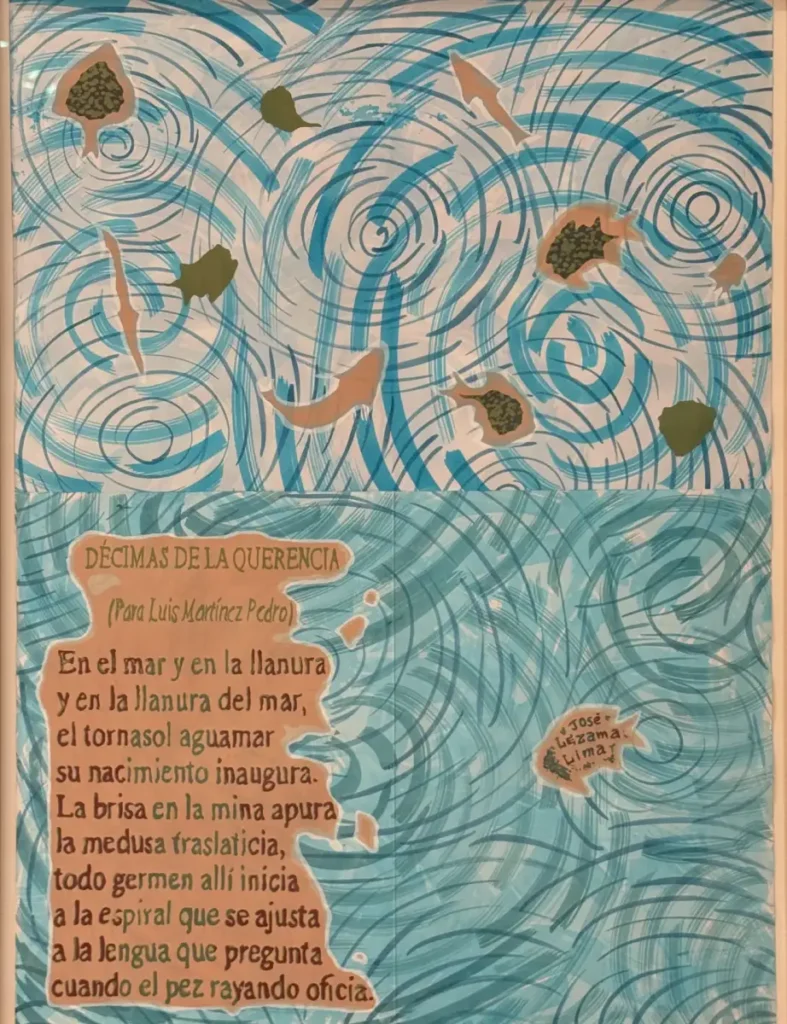 DÉCIMAS DE LA QUERENCIA
(Para Luis Martínez Pedro)
En el mar y en la llanura
y en la llanura del mar,
el tornasol aguamar
su nacimiento inaugura.
La brisa en la mina apura
la medusa traslaticia,
todo germen allí inicia
a la espiral que se ajusta
a la lengua que pregunta
cuando el pez rayando oficia.
José
Lezama
Lima